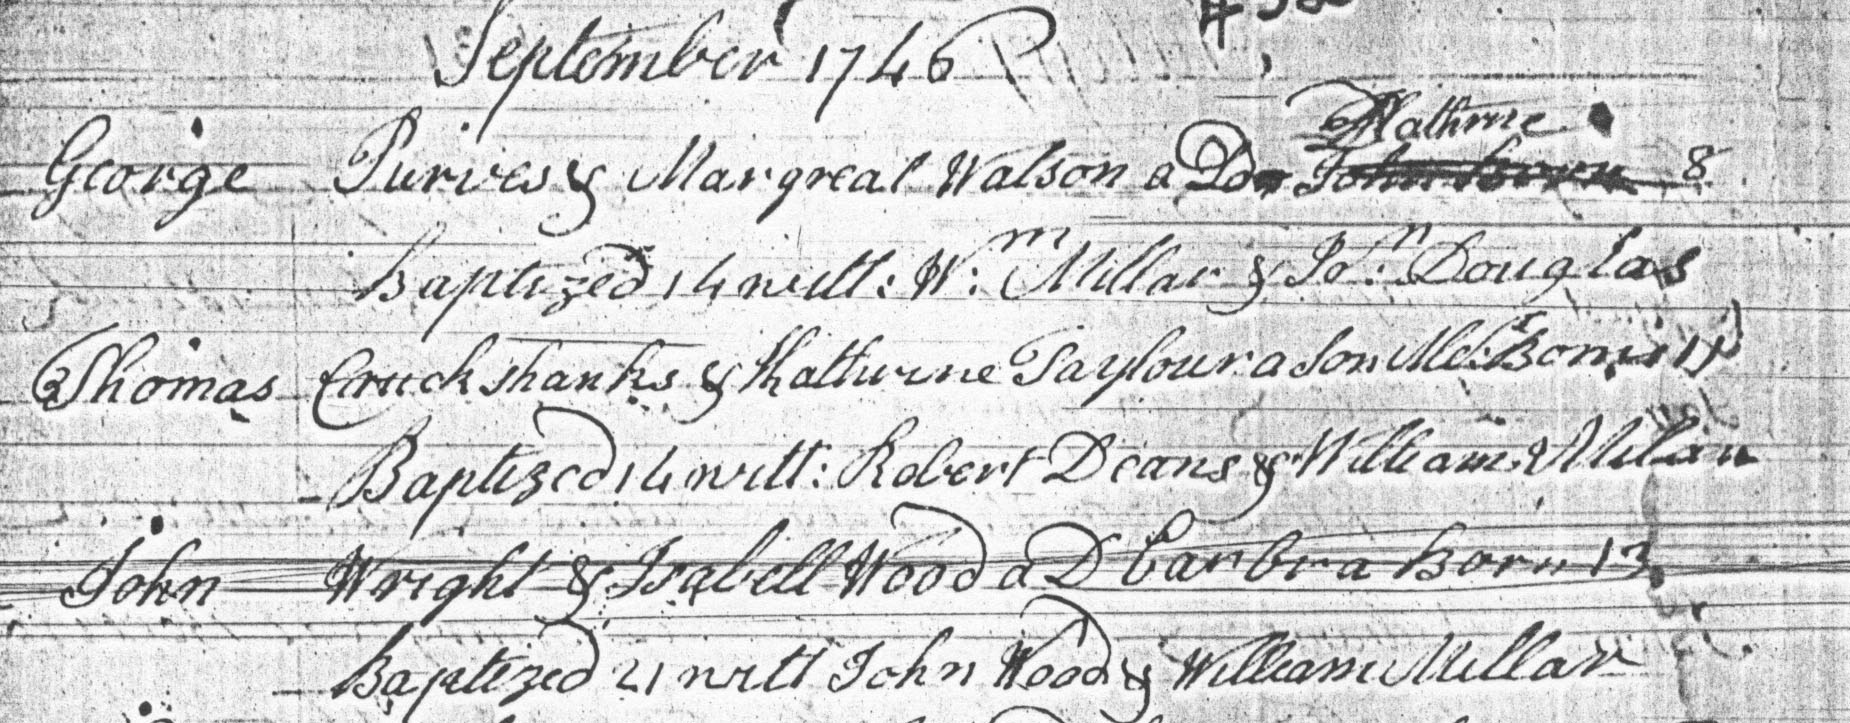 September 1746
Kathrine
George Purves & Margreat Watson a Dor John born 8
Baptized 14 witt: Wm: Millar & Jon: Douglas
Thomas Cruckshanks & Kathrine Taylour a Son Alexr Born 11
Baptized 14 witt: Robert Deans & William Millar
John Wright & Isabell Wood a D Barbra Born 13
Baptized 21 witt John Wood & William Millar